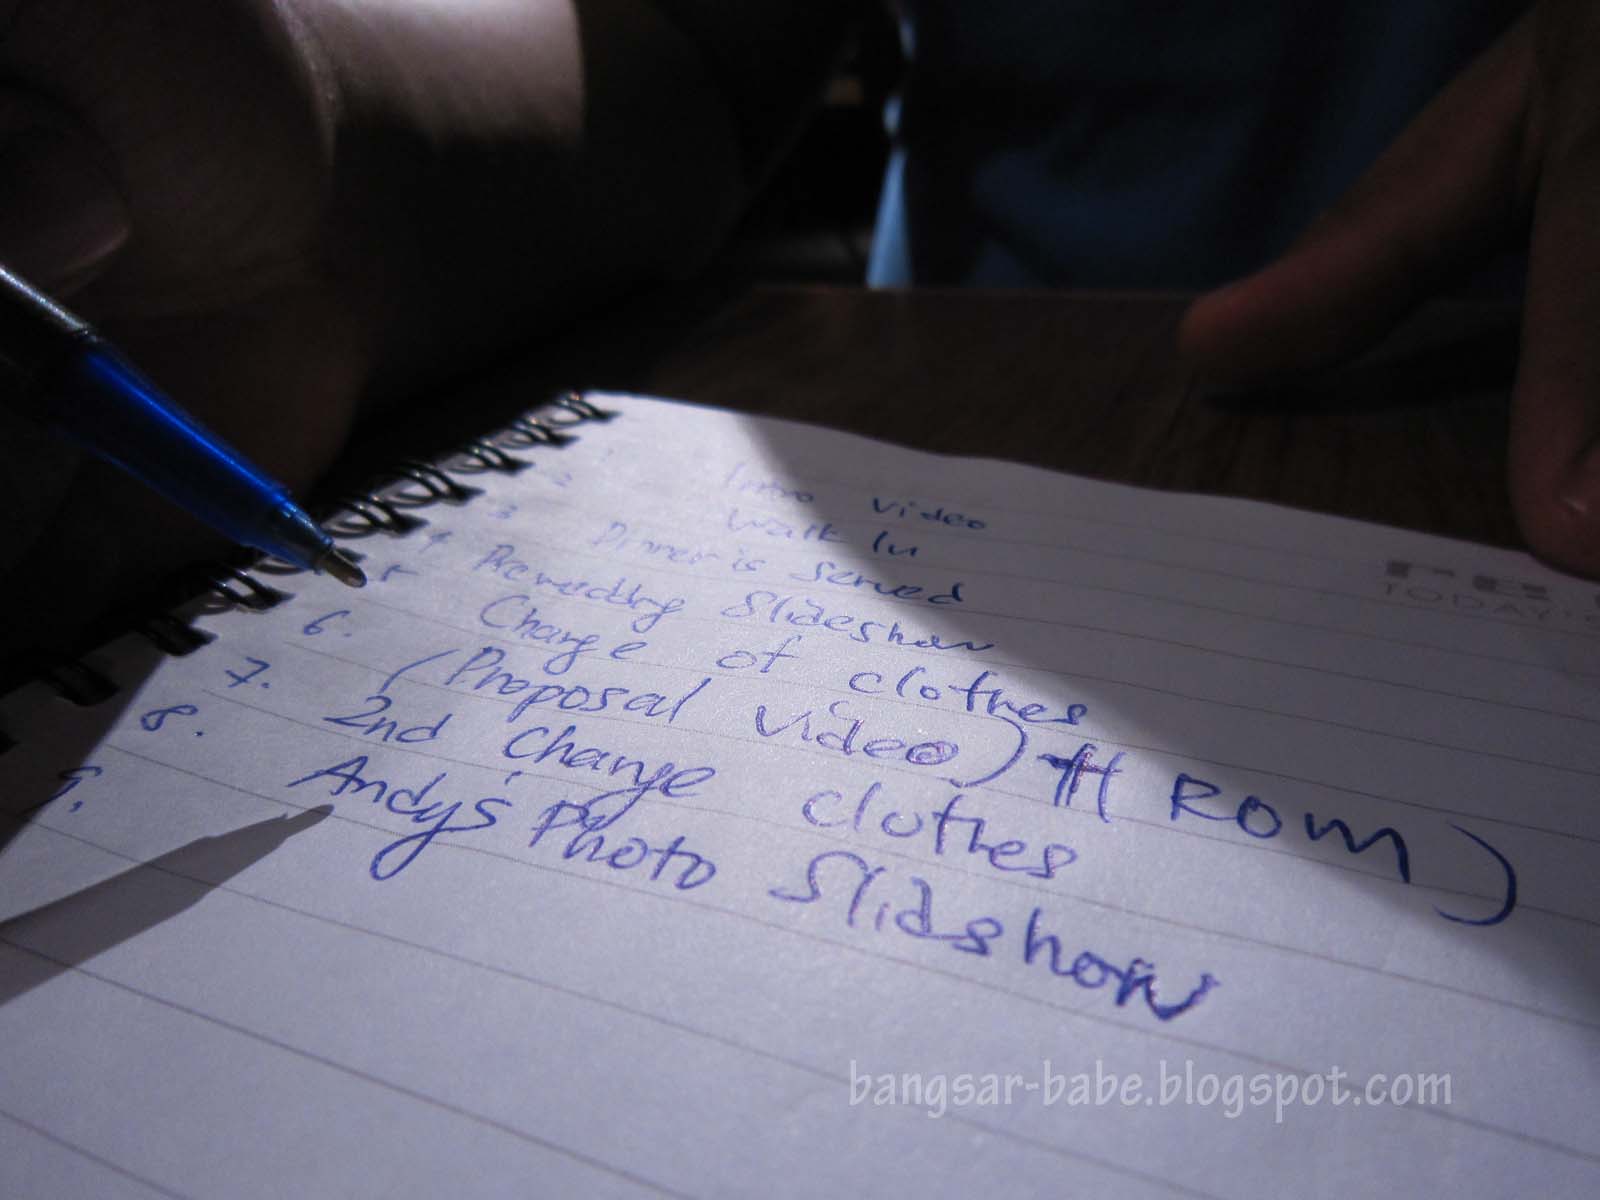 1 Intro video
2 Walk In
3 Dinner is served
4 Prewedding Slideshow
5 Change of clothes
6. (Proposal video) + ( ROM )
7. 2nd change clothes
8. Andy's Photo Slideshow
9.
TODAY
bangsar-babe.blogspot.com